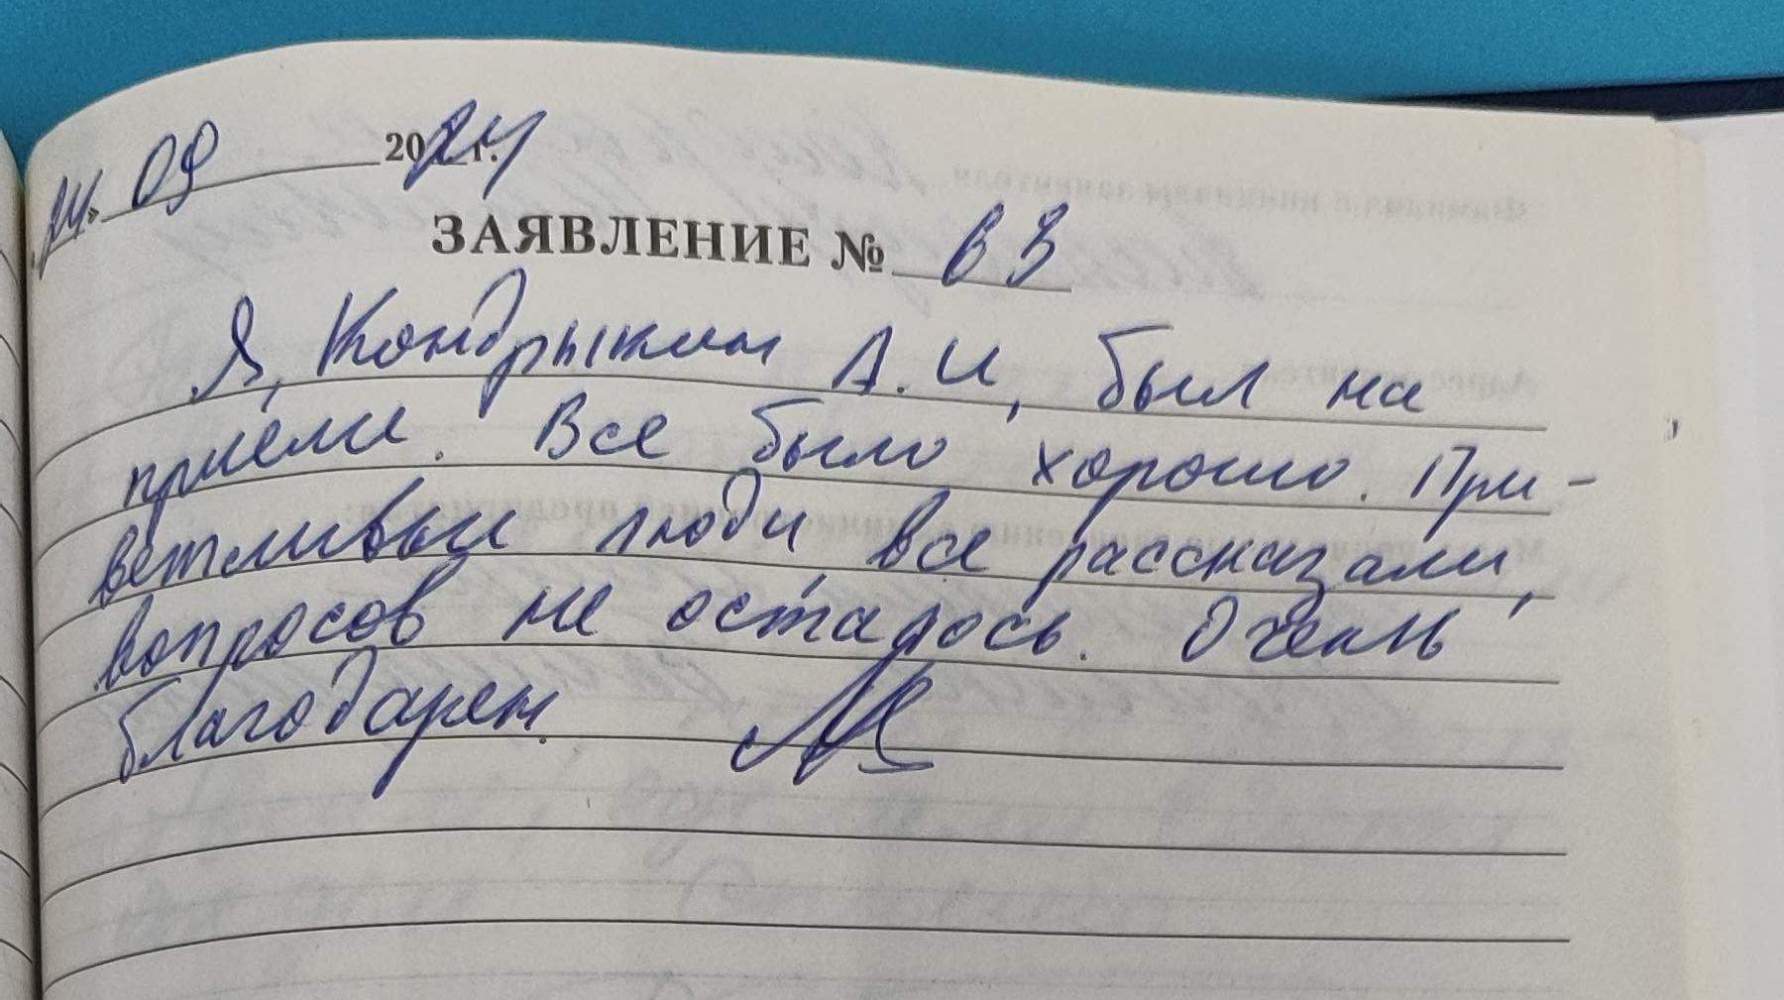 09 2024 г.
ЗАЯВЛЕНИЕ № 63
Я, Кондрыкин А.И, был на
приёме. Все было хорошо. При-
ветливые люди, все рассказали,
вопросов не осталось. Очень
благодарен.